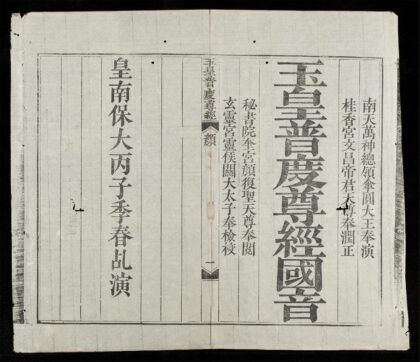 南天萬神總領傘圓大王奉演
桂香宮文昌帝君天尊奉潤正
玉皇普度尊經國音
秘書院奎宮顔復聖天尊奉閱
玄靈宮靈侯關大太子奉檢校
玉皇普度尊經
一
皇南保大丙子季春乩演